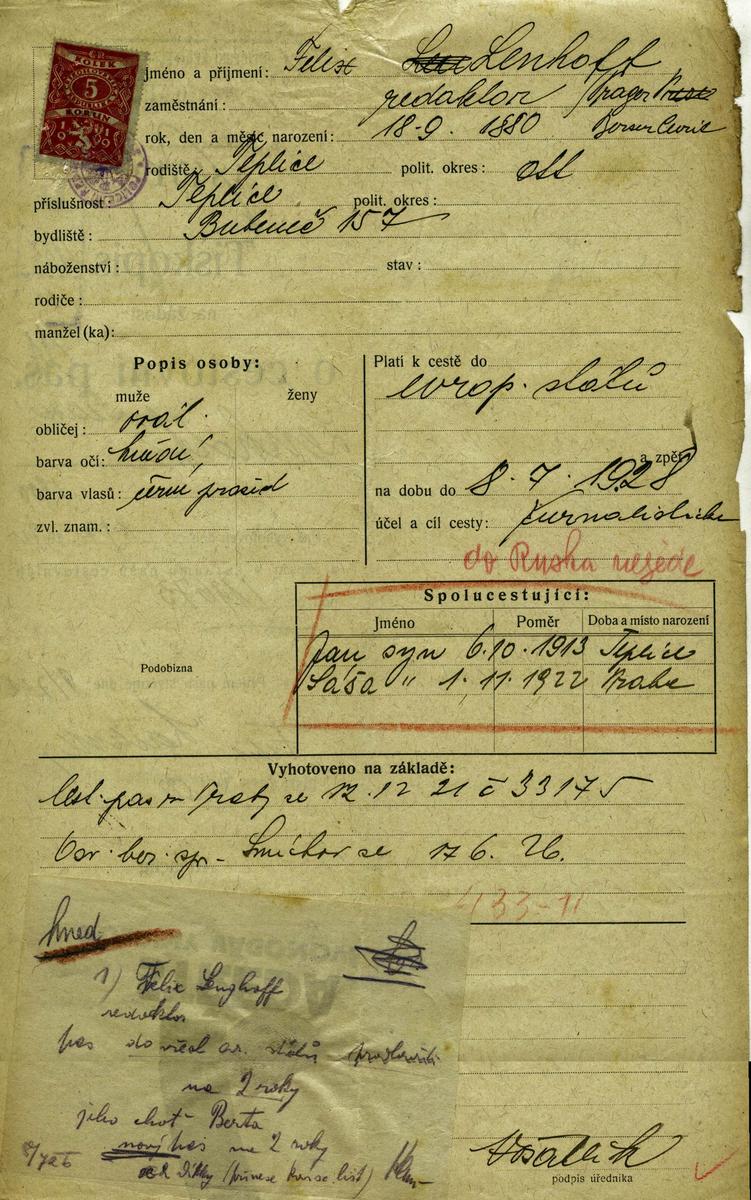 KOLEK
5
KORUN
jméno a příjmení: Felix Lenhoff
zaměstnání: redaktor Prager Presse
rok, den a měsíc narození: 18-9. 1880
rodiště: Teplice polit. okres: dtt
příslušnost: Teplice polit. okres:
bydliště: Bubeneč 157
náboženství: stav:
rodiče:
manžel(ka):
Popis osoby:
muže ženy
obličej: ovál.
barva očí: hnědé
barva vlasů: černé prošed
zvl. znam.:
Platí k cestě do
evrop. států
a zpět
na dobu do 8. 7. 1928
účel a cíl cesty: žurnalistická
do Ruska nejede
Spolucestující:
Jméno Poměr Doba a místo narození
Jan syn 6.10.1913 Teplice
Sáša " 1.11.1922 Praha
Podobizna
Vyhotoveno na základě:
cest. pas Prahy ze 12.12 21 č 33175
bez. spr. Smíchov ze 17 6. 26.
433-11
hned
1) Felix Lenghoff
redaktor
pas do všech ev. států prodloužiti
na 2 roky
jeho choť Berta
nový pas na 2 roky
podpis úředníka